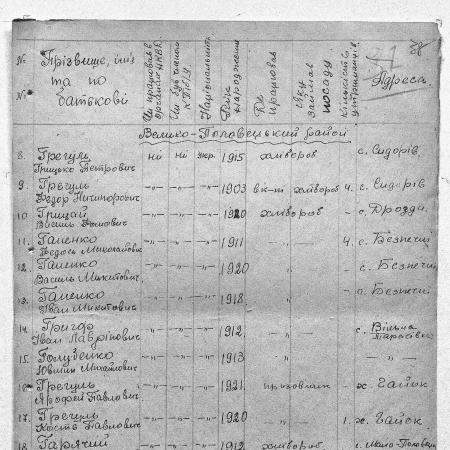 № № Прізвище, ім'я та по батькові Чи працював в органах НКВС Чи був членом КП(б)У Національність Рік народження Де працював Яку займав посаду Кількість утриманців Адреса
Велико-Половецький район
8. Грегуль Грицько Петрович ні ні укр. 1915 хлібороб с. Сидорів
9. Грегуль Федор Ничипорович -"- -"- -"- 1903 хлібороб 4. с. Сидорів
10. Грицай -"- -"- -"- 1920 хлібороб - с. Дрозди
11. Гаценко Федось Миколайович -"- -"- -"- 1911 -"- 4. с. Безпечна
12. Гаценко Василь Микитович -"- -"- -"- 1920 с. Безпечна
13. Гаценко Іван Микитович -"- -"- -"- 1918 -"- с. Безпечна
14. Григор Іван Лаврінович -"- -"- -"- 1912 с. Вільна Тарасівка
15. Голубенко Юхим Михайлович -"- -"- -"- 1913 -"-
16. Грегуль Ярофей Павлович -"- -"- -"- 1921. призовник - х. Гайок
17. Грегуль Кость Павлович -"- -"- -"- 1920 -"- 1. х. Гайок
18. Гарячий 1912 хлібороб с. Мало-Половец